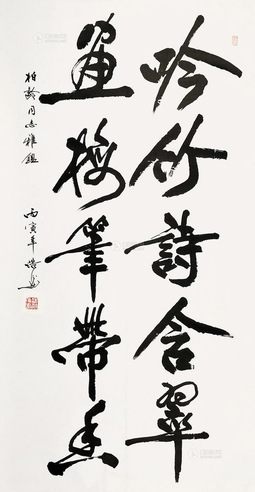 吟竹詩含翠
畫梅筆帶香
柏齡同志雅鑑
丙寅年